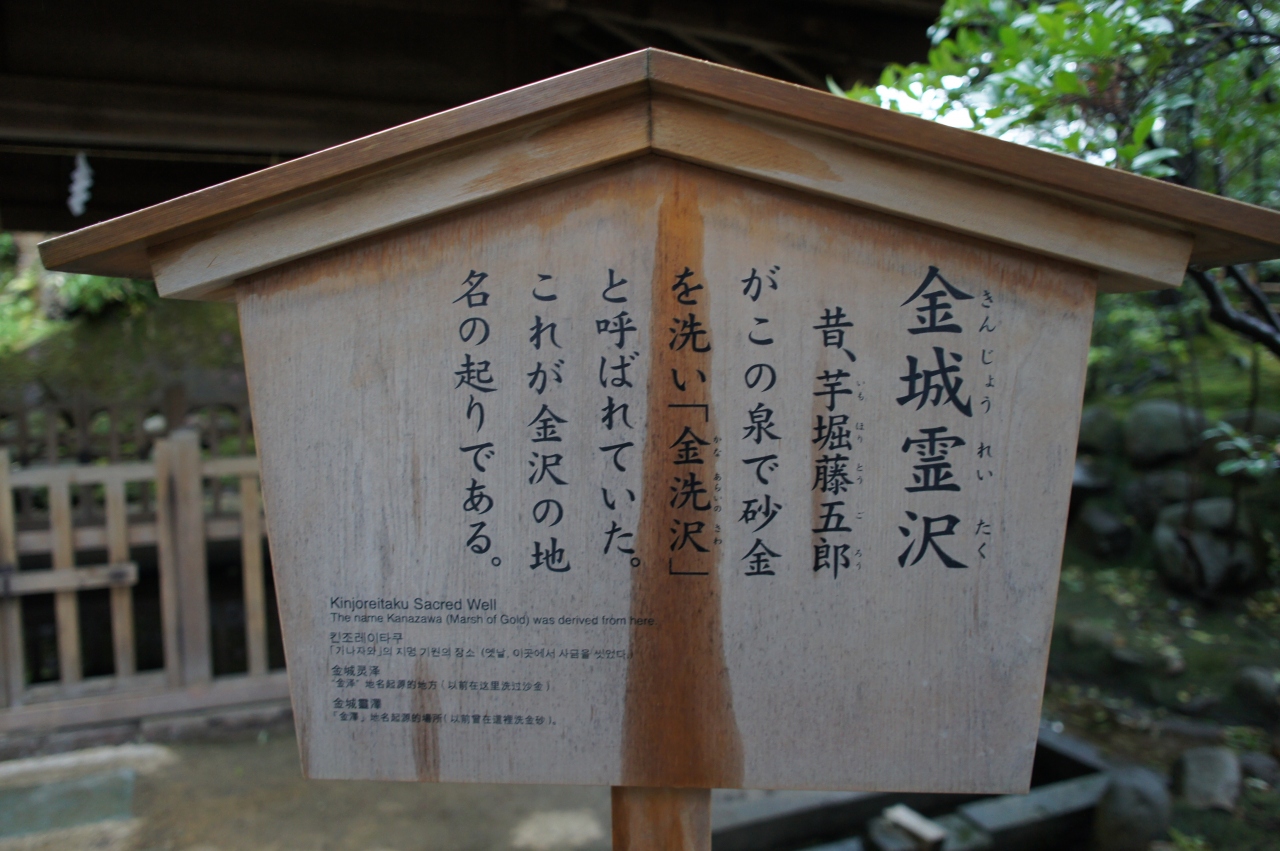 金城霊沢
きんじょう れい たく
昔、芋堀藤五郎
いも ほり とう ご ろう
がこの泉で砂金
を洗い「金洗沢」
かな あらいの さわ
と呼ばれていた。
これが金沢の地
名の起りである。
Kinjoreitaku Sacred Well
The name Kanazawa (Marsh of Gold) was derived from here
킨조레이타쿠
「가나자와」의 지명 기원의 장소 (옛날, 이곳에서 사금을 씻었다.)
金城灵泽
"金泽" 地名起源的地方（以前在这里洗过沙金）
金城靈澤
「金澤」地名起源的場所（以前曾在這裡洗金砂）。